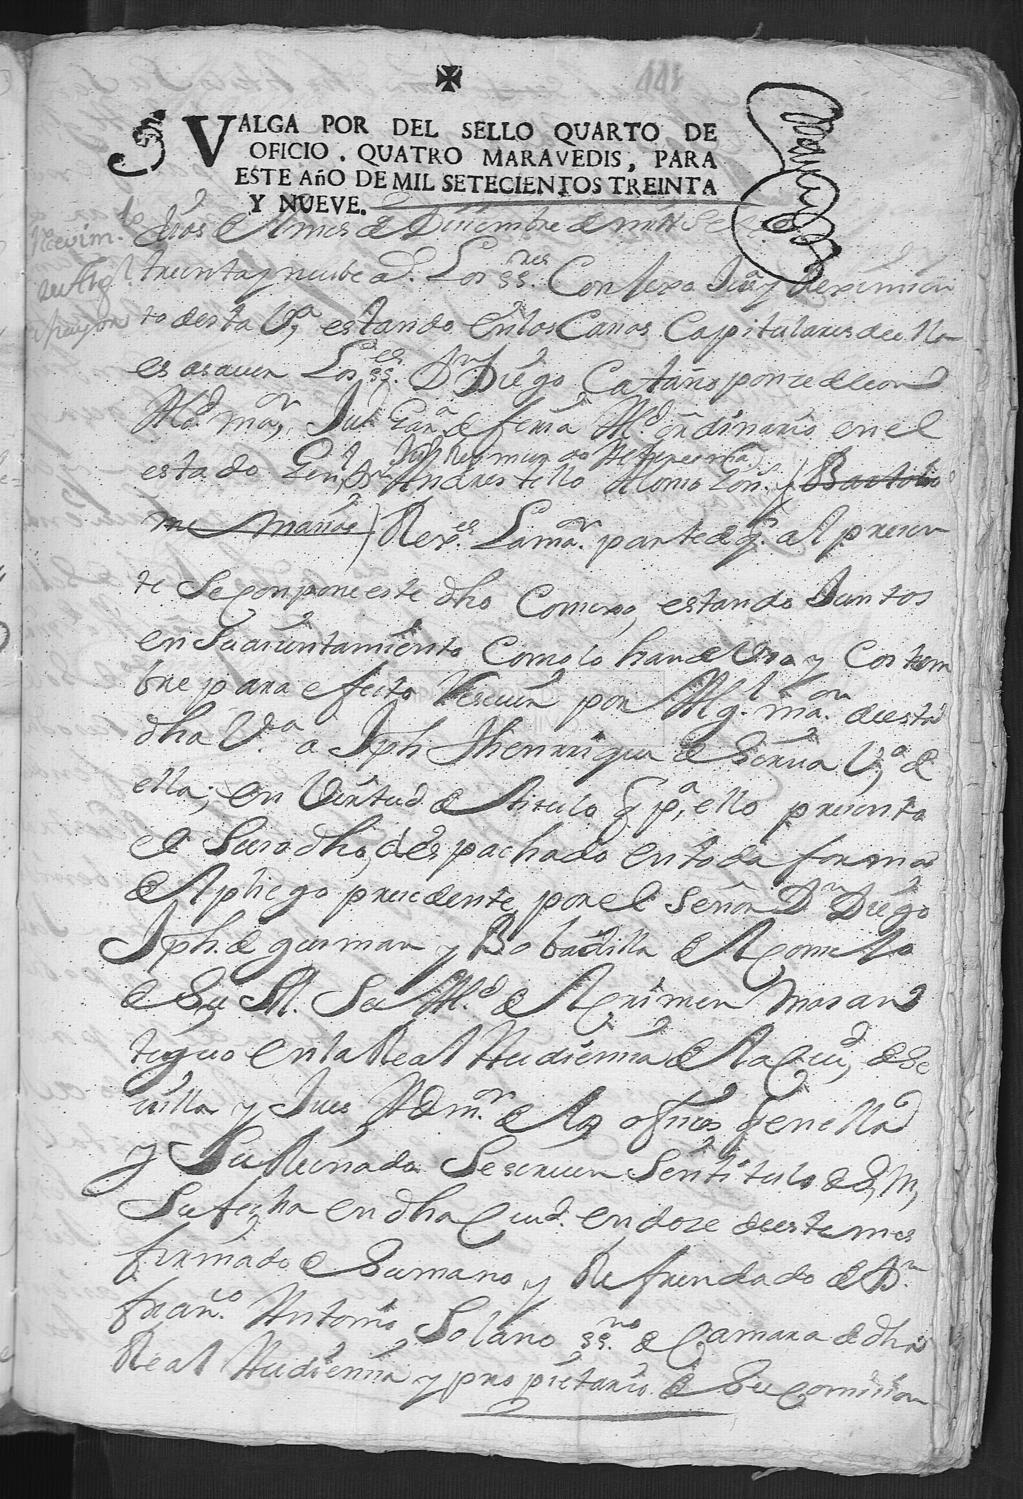 VALGA POR DEL SELLO QUARTO DE
OFICIO. QUATRO MARAVEDIS, PARA
ESTE AñO DE MIL SETECIENTOS TREINTA
Y NUEVE.
Recivim.to
dias del mes de Diziembre de mill Sete
treinta y nuebe a.s Los ss.res Consexo Jus.a y Reximien
to desta V.a estando en las Casas Capitulares de ella
es asaver Los ss.res D.n Diego Cataño ponze de leon
Alc.d may.or Ju.n de feria Al.d ordinario en el
estado Gen.l D.n Andres tello Alonso
me mañas Rex.es La ma.or parte de q.e al presen
te Se conpone este dho Consexo, estando Juntos
en Su aiuntamiento Como lo han de Uso y Costum
bre para efecto Resevir por Alg.l ma.or de esta
dha V.a a Jph Henrriques de V.o de
ella, en Virtud de titulo q p.a ello presenta
el Susodho, despachado en toda forma
el pliego presedente por el Señor D.n Diego
Jph. de gusman y Bobadilla de el Conse Jo
de Su M. Su Al.d de el Crimen mas an
tiguo en la Real Audienzia de la Ciu.d de Se
villa y Jues Adm.or de los ofisios q en ella
y Su Reinado Se sirven Sin titulo de S, M,
Su fecha en dha Ciud. en doze de este mes
firmado de Su mano y Refrendado de D.n
fran.co Antonio Solano ss.no de Camara de dha
Real Audienzia y propietario de Su Comision